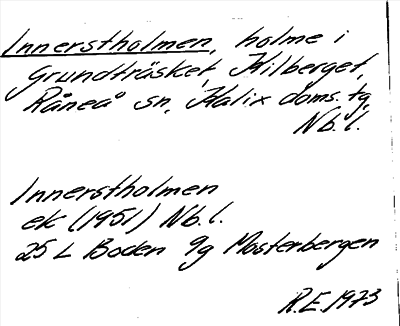 Innerstholmen, holme i
Grundträsket, Hilberget,
Råneå sn, Kalix doms. tg,
Nb. l.
Innerstholmen
ek (1951) Nb. l.
25 L Boden 9g Mosterbergen
R.E. 1973